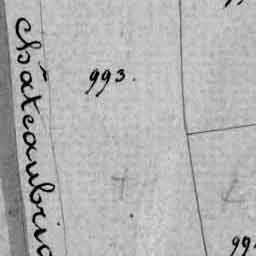 châteaubria
993.